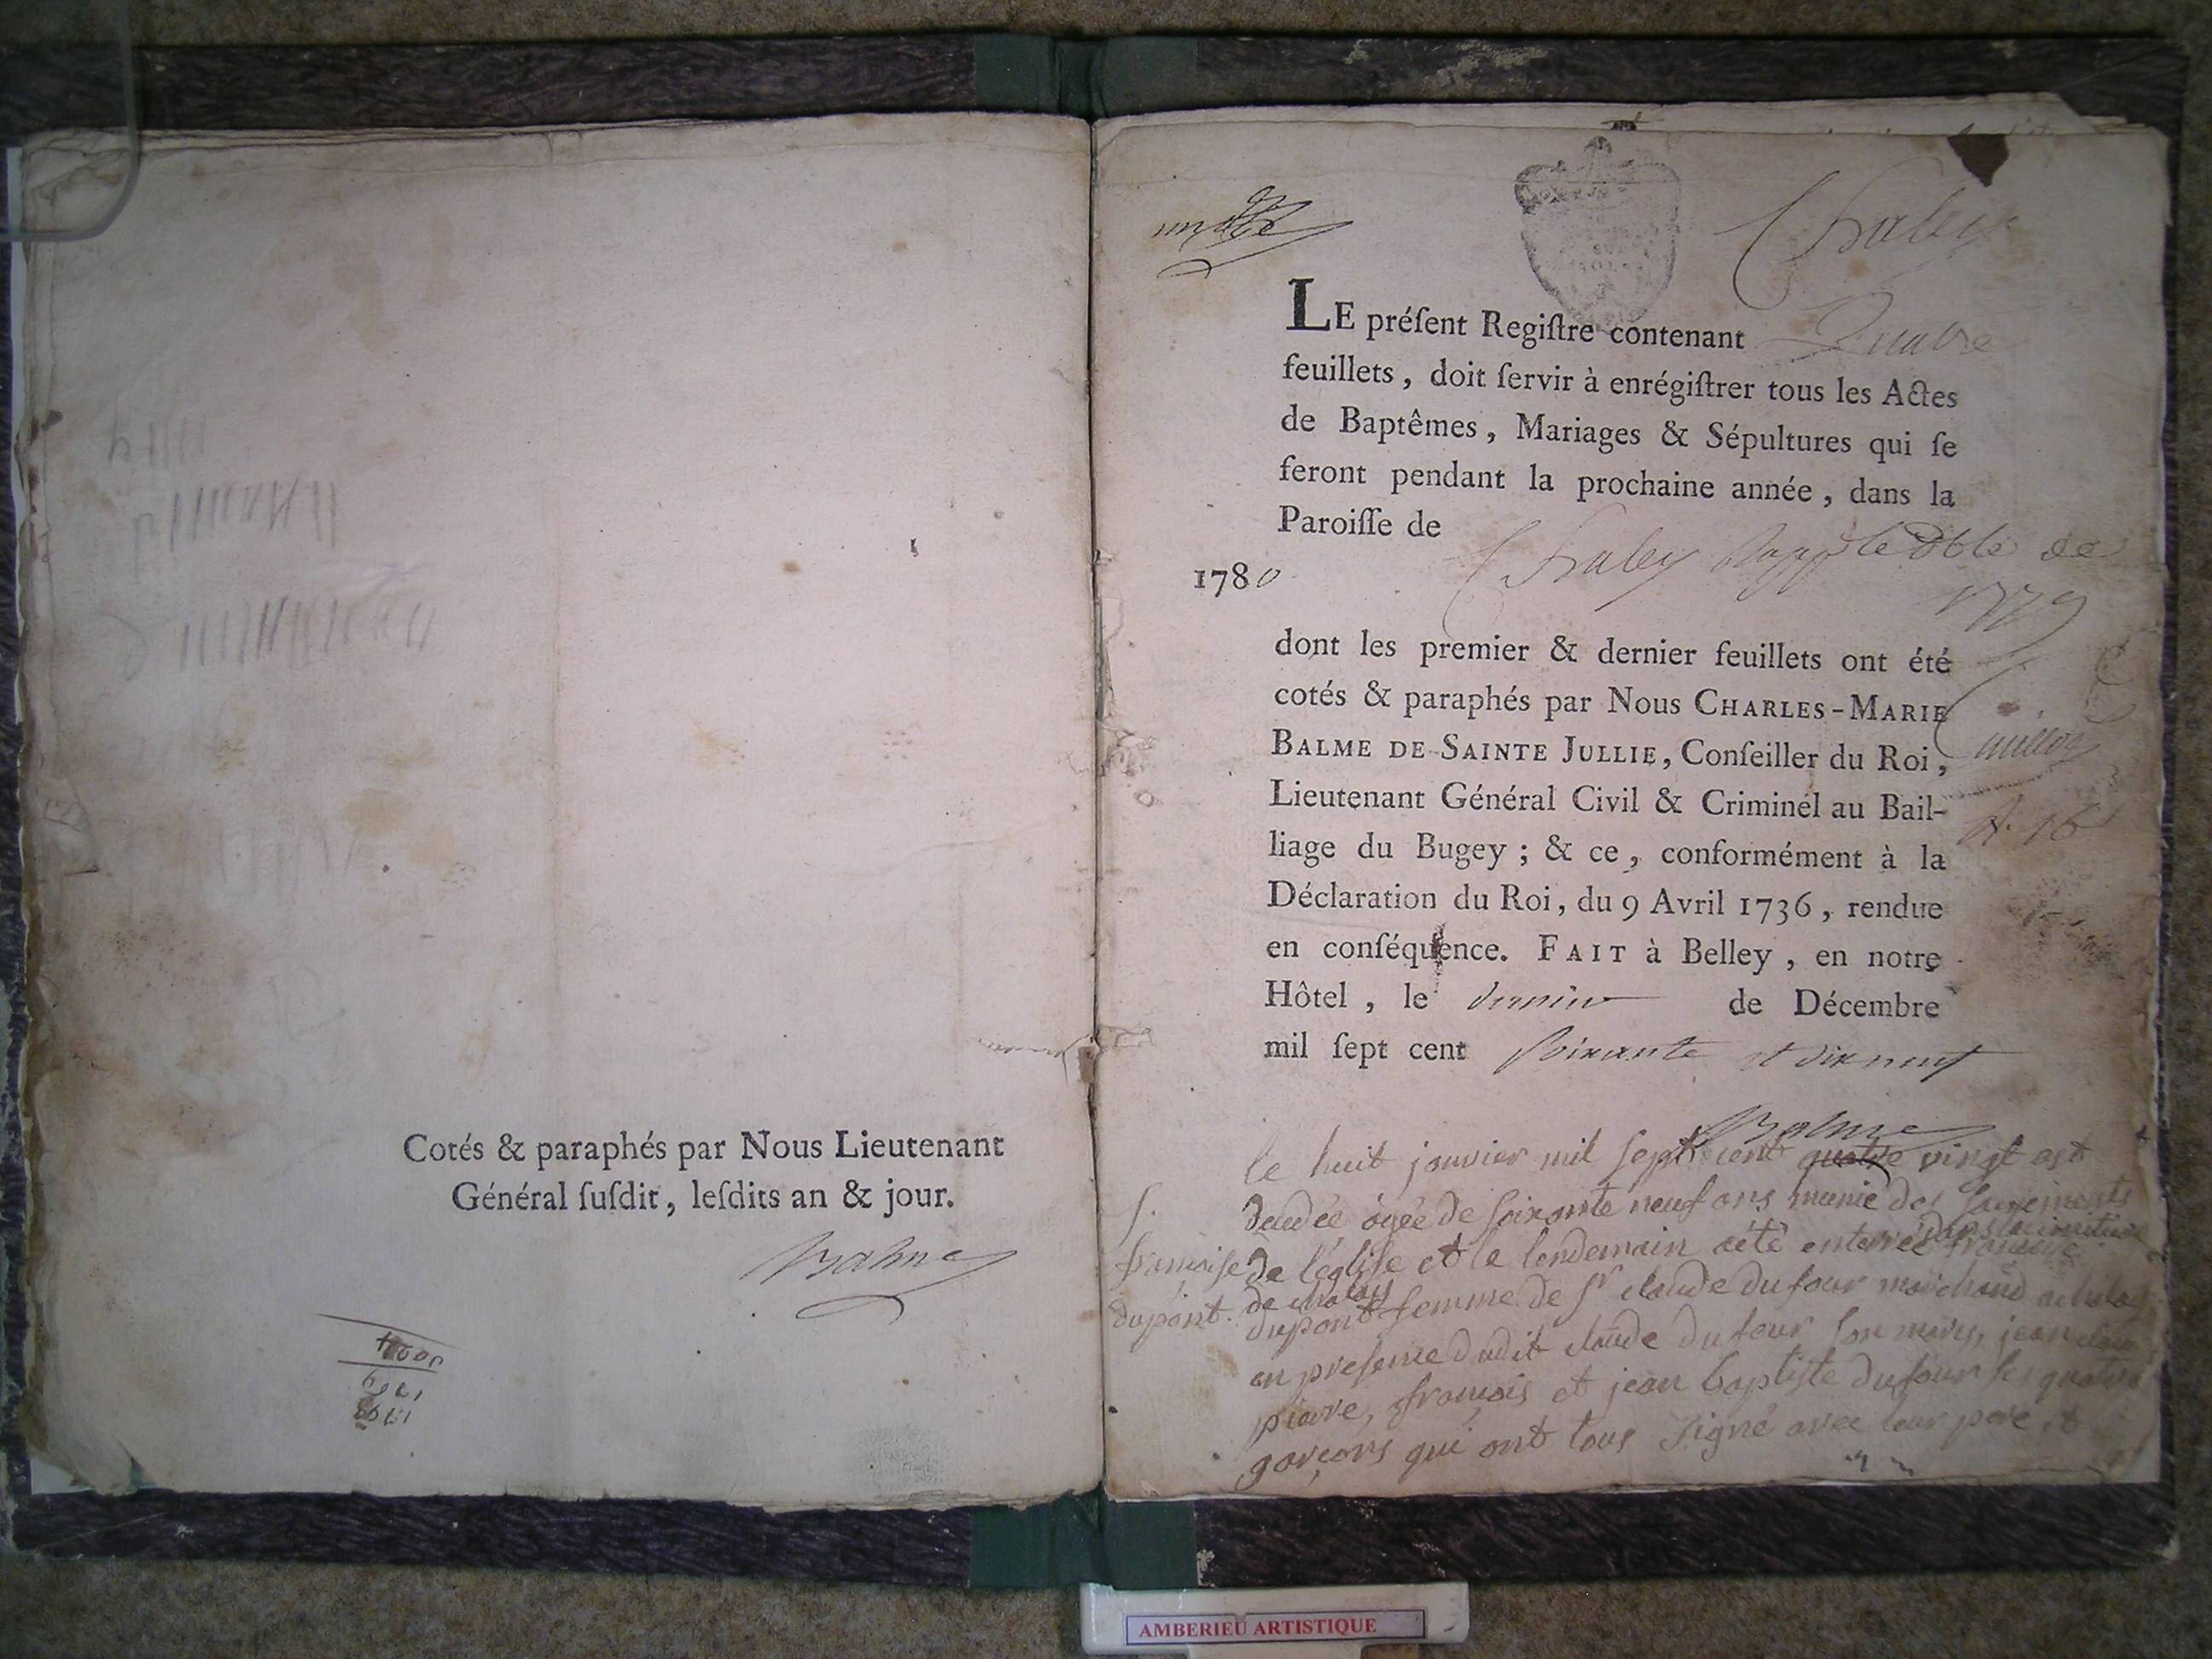 Cotés & paraphés par Nous Lieutenant
Général ſuſdit, leſdits an & jour.
Balme
Chaley
LE préſent Regiſtre contenant Quatre
feuillets, doit ſervir à enrégiſtrer tous les Actes
de Baptêmes, Mariages & Sépultures qui ſe
feront pendant la prochaine année, dans la
Paroiſſe de Chaley
1780
1779
dont les premier & dernier feuillets ont été
cotés & paraphés par Nous CHARLES-MARIE
BALME DE SAINTE JULLIE, Conſeiller du Roi,
Lieutenant Général Civil & Criminel au Bail-
liage du Bugey; & ce, conformément à la
Déclaration du Roi, du 9 Avril 1736, rendue
en conſéquence. FAIT à Belley, en notre
Hôtel, le dernier de Décembre
mil ſept cent soixante et dix neuf
Balme
le huit janvier mil sept cent quatre vingt est
S.
françoise
dupont
decedée agée de soixante neuf ans munie des sacrements
de l'église et le lendemain a été enterrée dans le cimetiere
de chaley françoise
dupont femme de Sr claude dufour marchand
en presence dudit claude dufour son mary, jean
pierre, françois et jean baptiste dufour
garçons qui ont tous signé avec leur pere et
AMBERIEU ARTISTIQUE